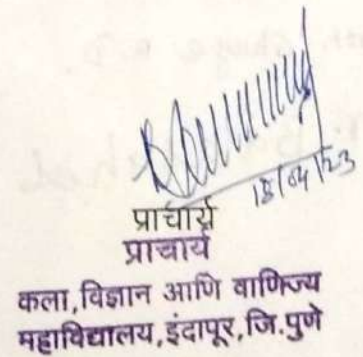 18/04/23
प्राचार्य
प्राचार्य
कला,विज्ञान आणि वाणिज्य
महाविद्यालय,इंदापूर,जि.पुणे